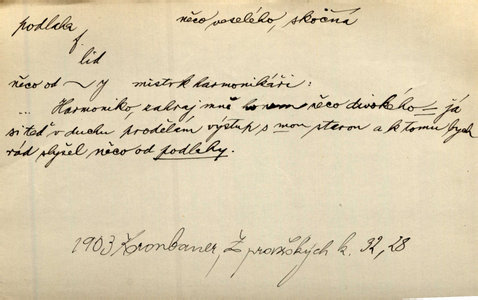 podlaha něco veselého, skočná
f.
lid
něco od ~ y mistr k harmonikáři:
... Harmoniko, zahraj mně honem něco divokého – já
si teď v duchu prodělám výstup s mou starou a k tomu bych
rád slyšel něco od podlahy.
1903 Kronbauer, Z brdských k. 32, 28